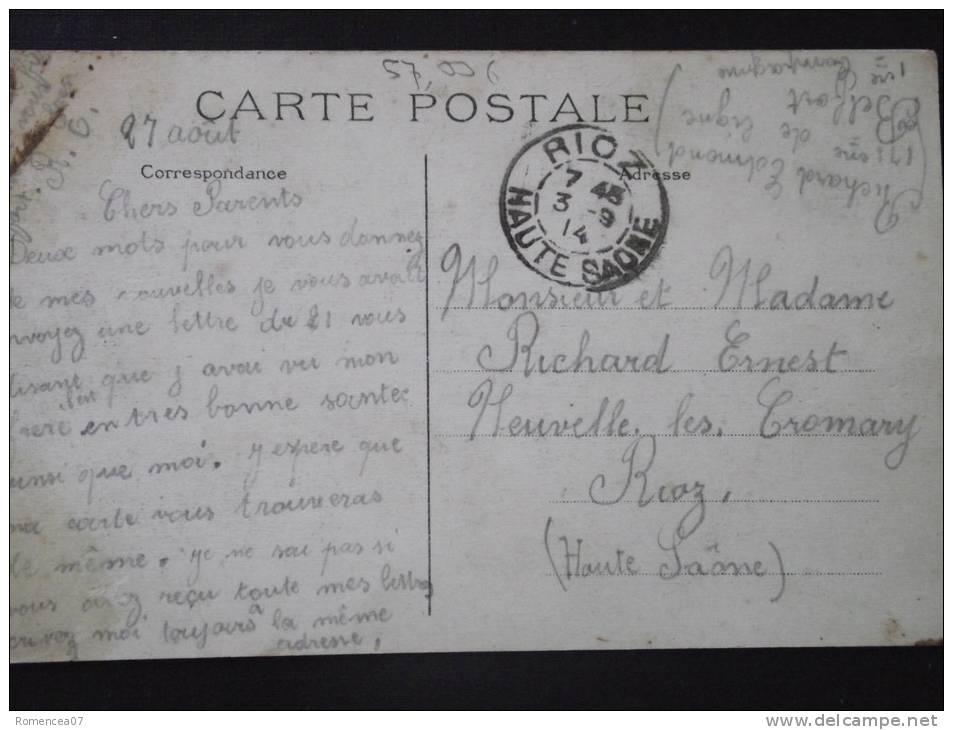 57,00€
CARTE POSTALE
27 aout
Correspondance
Adresse
RIOZ
7 45
3-9
14
HAUTE SAONE
Chers Parents
Deux mots pour vous donnez
de mes nouvelles je vous avait
envoyez une lettre du 21 vous
disant que j avai vu mon
frere en tres bonne santée
ainsi que moi. j espere que
ma carte vous trouveras
de même. je ne sai pas si
vous avez reçu toute mes lettres
ecrivez moi toujours à la même
adresse.
R. E.
Monsieur et Madame
Richard Ernest
Neuvelle. les. Cromary
Rioz.
(Haute Saône)
Richard Edmond
(171 eme de ligne)
Belfort
1 ere Compagnie
Romencea07
www.delcampe.net